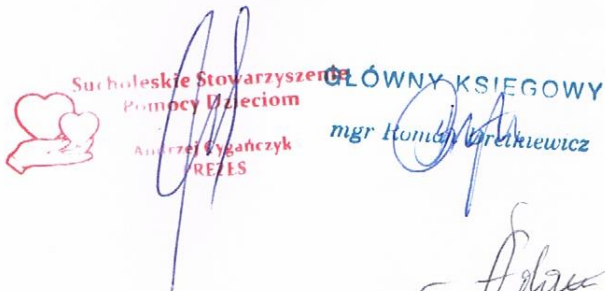 Sucholeskie Stowarzyszenie
Pomocy Dzieciom
Andrzej Cygańczyk
PREZES
GŁÓWNY KSIĘGOWY
mgr Roman